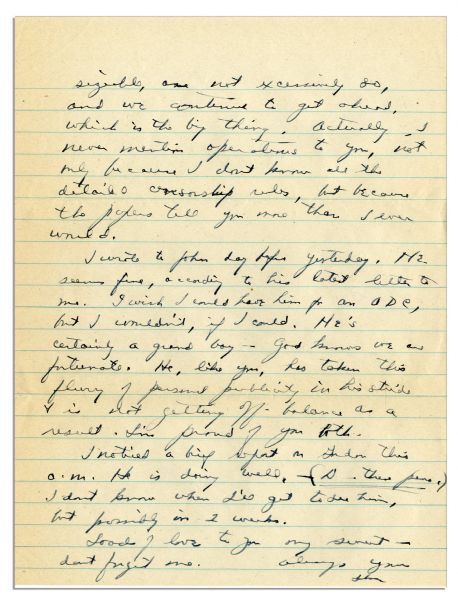 sizeable, are not excessively so,
and we continue to get ahead,
which is the big thing. Actually I
never mention operations to you, not
only because I don't know all the
detailed censorship rules, but because
the papers tell you more than I ever
would.
I wrote to John day before yesterday. He
seems fine, according to his latest letter to
me. I wish I could have him for an ADC,
but I wouldn't, if I could. He's
certainly a grand boy - God knows we are
fortunate. He, like you, has taken this
flurry of personal publicity in his stride
& is not getting off-balance as a
result. I'm proud of you both.
I noticed a brief report on this
a.m. He is doing well. - (D - this pen.)
I don't know when I'll get to see him,
but possibly in 2 weeks.
Loads of love to you my sweet -
don't forget me. Always your